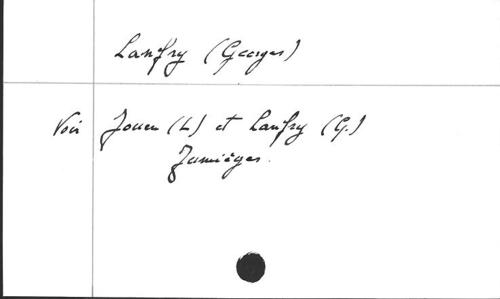 Lanfry (Georges)
Voir Jouen (L) et Lanfry (G.)
Jumièges.